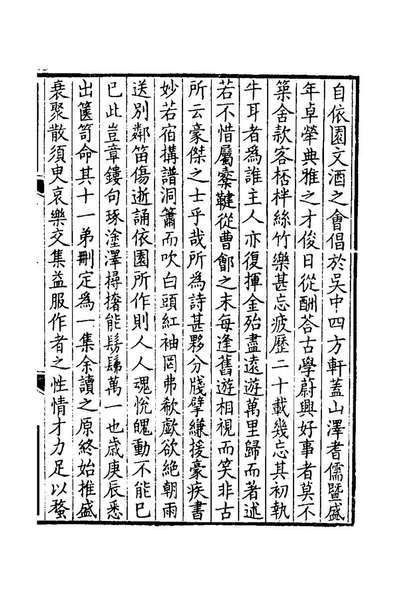 自依園文酒之會倡於吳中四方軒蓋山澤耆儒暨盛
年卓犖典雅之才俊日從酬荅古學蔚興好事者莫不
築舍款客桮柈絲竹樂甚忘疲歷二十載幾忘其初執
牛耳者為誰主人亦復揮金殆盡遠遊萬里歸而著述
若不惜屬櫜鞬從曹鄶之末每逢舊遊相視而笑非古
所云豪傑之士乎哉所為詩甚夥分牋擘縑援豪疾書
妙若宿搆譜洞簫而吹白頭紅袖罔弗欷歔欲絕朝雨
送別鄰笛傷逝誦依園所作則人人魂恍魄動不能已
已此豈章鏤句琢塗澤撏撦能髣髴萬一也歲庚辰悉
出篋笥命其十一弟刪定為一集余讀之原終始推盛
衰聚散須臾哀樂交集益服作者之性情才力足以發